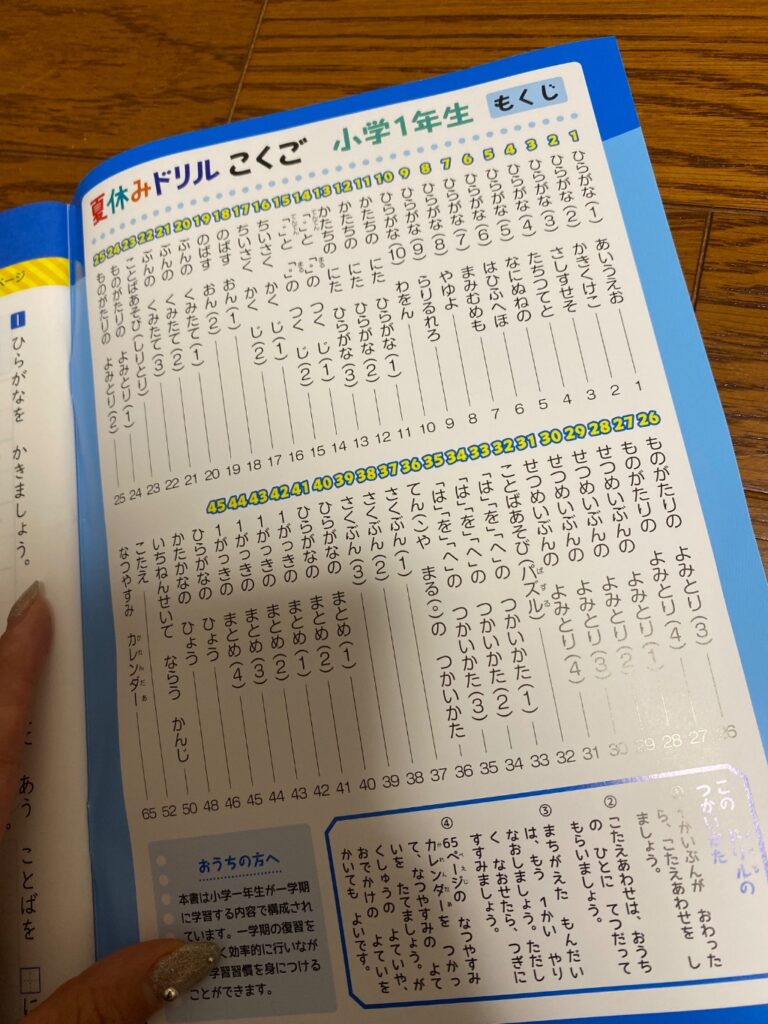 夏休みドリル こくご 小学1年生 もくじ
1 ひらがな(1) あいうえお 1
2 ひらがな(2) かきくけこ 2
3 ひらがな(3) さしすせそ 3
4 ひらがな(4) たちつてと 4
5 ひらがな(5) なにぬねの 5
6 ひらがな(6) はひふへほ 6
7 ひらがな(7) まみむめも 7
8 ひらがな(8) やゆよ 8
9 ひらがな(9) らりるれろ 9
10 ひらがな(10) わをん 10
11 かたちの にた ひらがな(1) 11
12 かたちの にた ひらがな(2) 12
13 かたちの にた ひらがな(3) 13
14 「゛」と「゜」の つく じ(1) 14
15 「゛」と「゜」の つく じ(2) 15
16 ちいさく かく じ(1) 16
17 ちいさく かく じ(2) 17
18 のばす おん(1) 18
19 のばす おん(2) 19
20 ぶんの くみたて(1) 20
21 ぶんの くみたて(2) 21
22 ぶんの くみたて(3) 22
23 ことばあそび(しりとり) 23
24 ものがたりの よみとり(1) 24
25 ものがたりの よみとり(2) 25
26 ものがたりの よみとり(3) 26
27 ものがたりの よみとり(4) 27
28 せつめいぶんの よみとり(1) 28
29 せつめいぶんの よみとり(2) 29
30 せつめいぶんの よみとり(3) 30
31 せつめいぶんの よみとり(4) 31
32 ことばあそび(パズル) 32
33 「は」「を」「へ」の つかいかた(1) 33
34 「は」「を」「へ」の つかいかた(2) 34
35 「は」「を」「へ」の つかいかた(3) 35
36 てん(、)や まる(。)の つかいかた 36
37 さくぶん(1) 37
38 さくぶん(2) 38
39 さくぶん(3) 39
40 ひらがなの まとめ(1) 40
41 ひらがなの まとめ(2) 41
42 1がっきの まとめ(1) 42
43 1がっきの まとめ(2) 43
44 1がっきの まとめ(3) 44
45 1がっきの まとめ(4) 45
ひらがなの ひょう 46
かたかなの ひょう 48
いちねんせいで ならう かんじ 50
こたえ 52
なつやすみ カレンダー 65
この ドリルの
つかいかた
① 1かいぶんが おわった
ら、こたえあわせを し
ましょう。
② こたえあわせは、おうち
の ひとに てつだって
もらいましょう。
③ まちがえた もんだい
は、もう 1かい やり
なおしましょう。ただし
く なおせたら、つぎに
すすみましょう。
④ 65ページの なつやすみ
カレンダーを つかっ
て、なつやすみの よて
いを たてましょう。が
くしゅうの よていや、
おでかけの よていを
かいても よいです。
おうちの方へ
本書は小学一年生が一学期
に学習する内容で構成され
ています。一学期の復習を
く効率的に行いなが
学習習慣を身につける
ことができます。
ページ
1 ひらがなを かきましょう。
あう ことばを に